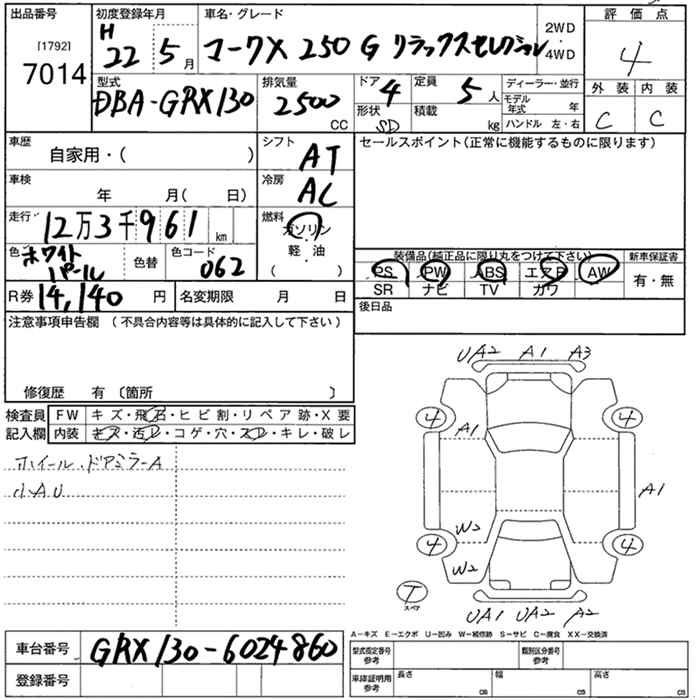 出品番号 初度登録年月 車名・グレード 2WD・4WD 評価点
[1792] 7014 H22 5月 マークX 250 G リラックスセレクション 4
型式 排気量 ドア 定員 ディーラー・並行 外装 内装
DBA-GRX130 2500 CC 4 5人 モデル年式 年 C C
形状 SD 積載 kg ハンドル 左・右
車歴 シフト セールスポイント(正常に機能するものに限ります)
自家用・( ) AT
車検 冷房
年 月( 日) AC
走行 燃料
12万3千961 km ガソリン・軽・油 ( )
色 色替 色コード 装備品(純正品に限り丸をつけて下さい) 新車保証書
ホワイトパール 062 PS PW ABS エアB AW 有・無
SR ナビ TV カワ
R券 14,140 円 名変期限 月 日 後日品
注意事項申告欄 (不具合内容等は具体的に記入して下さい)
修復歴 有 〔箇所 〕
検査員 FW キズ・飛石・ヒビ割・リペア跡・X要
記入欄 内装 キズ・汚レ・コゲ・穴・スレ・キレ・破レ
ホイール、ドアミラーA
小AU
UA2 A1 A3
4 4
A1
A1
W2
4 4
W2
T
スペア
UA1 UA2 A2
A-キズ E-エクボ U-凹み W-補修跡 S-サビ C-腐食 XX-交換済
車台番号 GRX130-6024860 型式指定番号 参考 類別区分番号 参考
登録番号 車庫証明用 参考 長さ CB 幅 CB 高さ CB